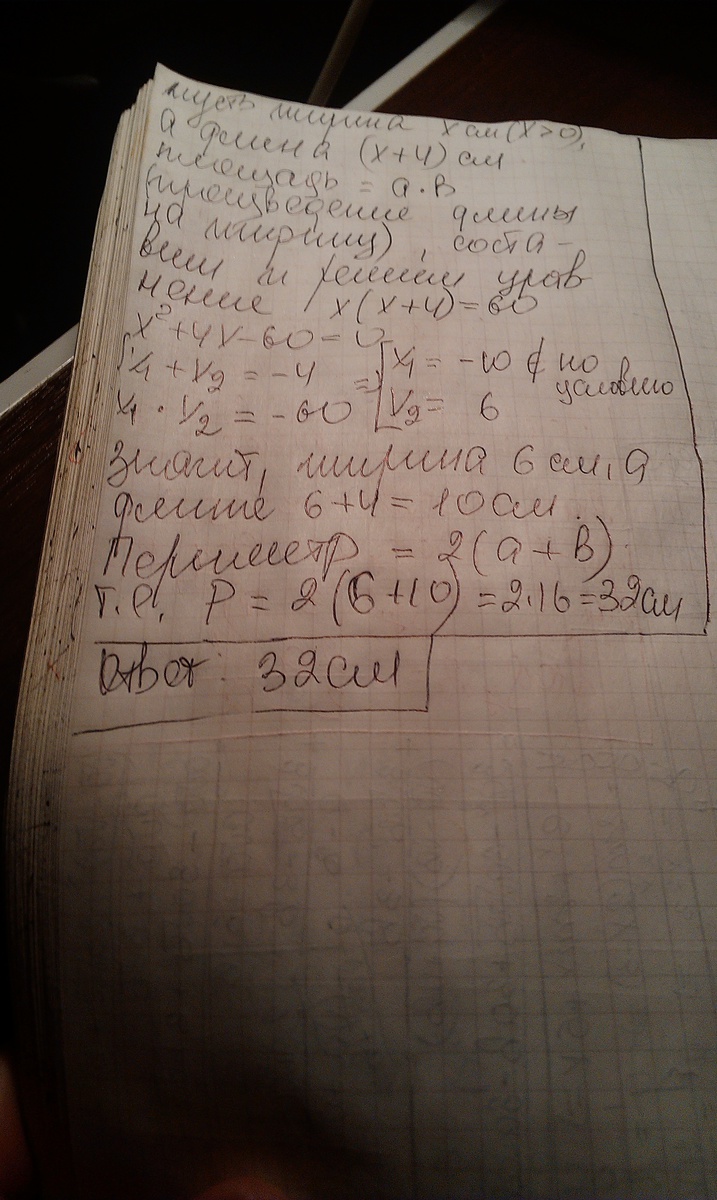 пусть ширина x см (x>0),
а длина (x+4) см
площадь = a·в
(произведение длины
на ширину), соста-
вим и решим урав
нение x(x+4)=60
x²+4x-60=0
x₁+x₂=-4 => [x₁=-10 ∉ по условию
x₁·x₂=-60 [x₂= 6
Значит, ширина 6 см, а
длина 6+4=10см.
Периметр = 2(a+в)
т.е. P=2(6+10)=2·16=32см
Ответ: 32см